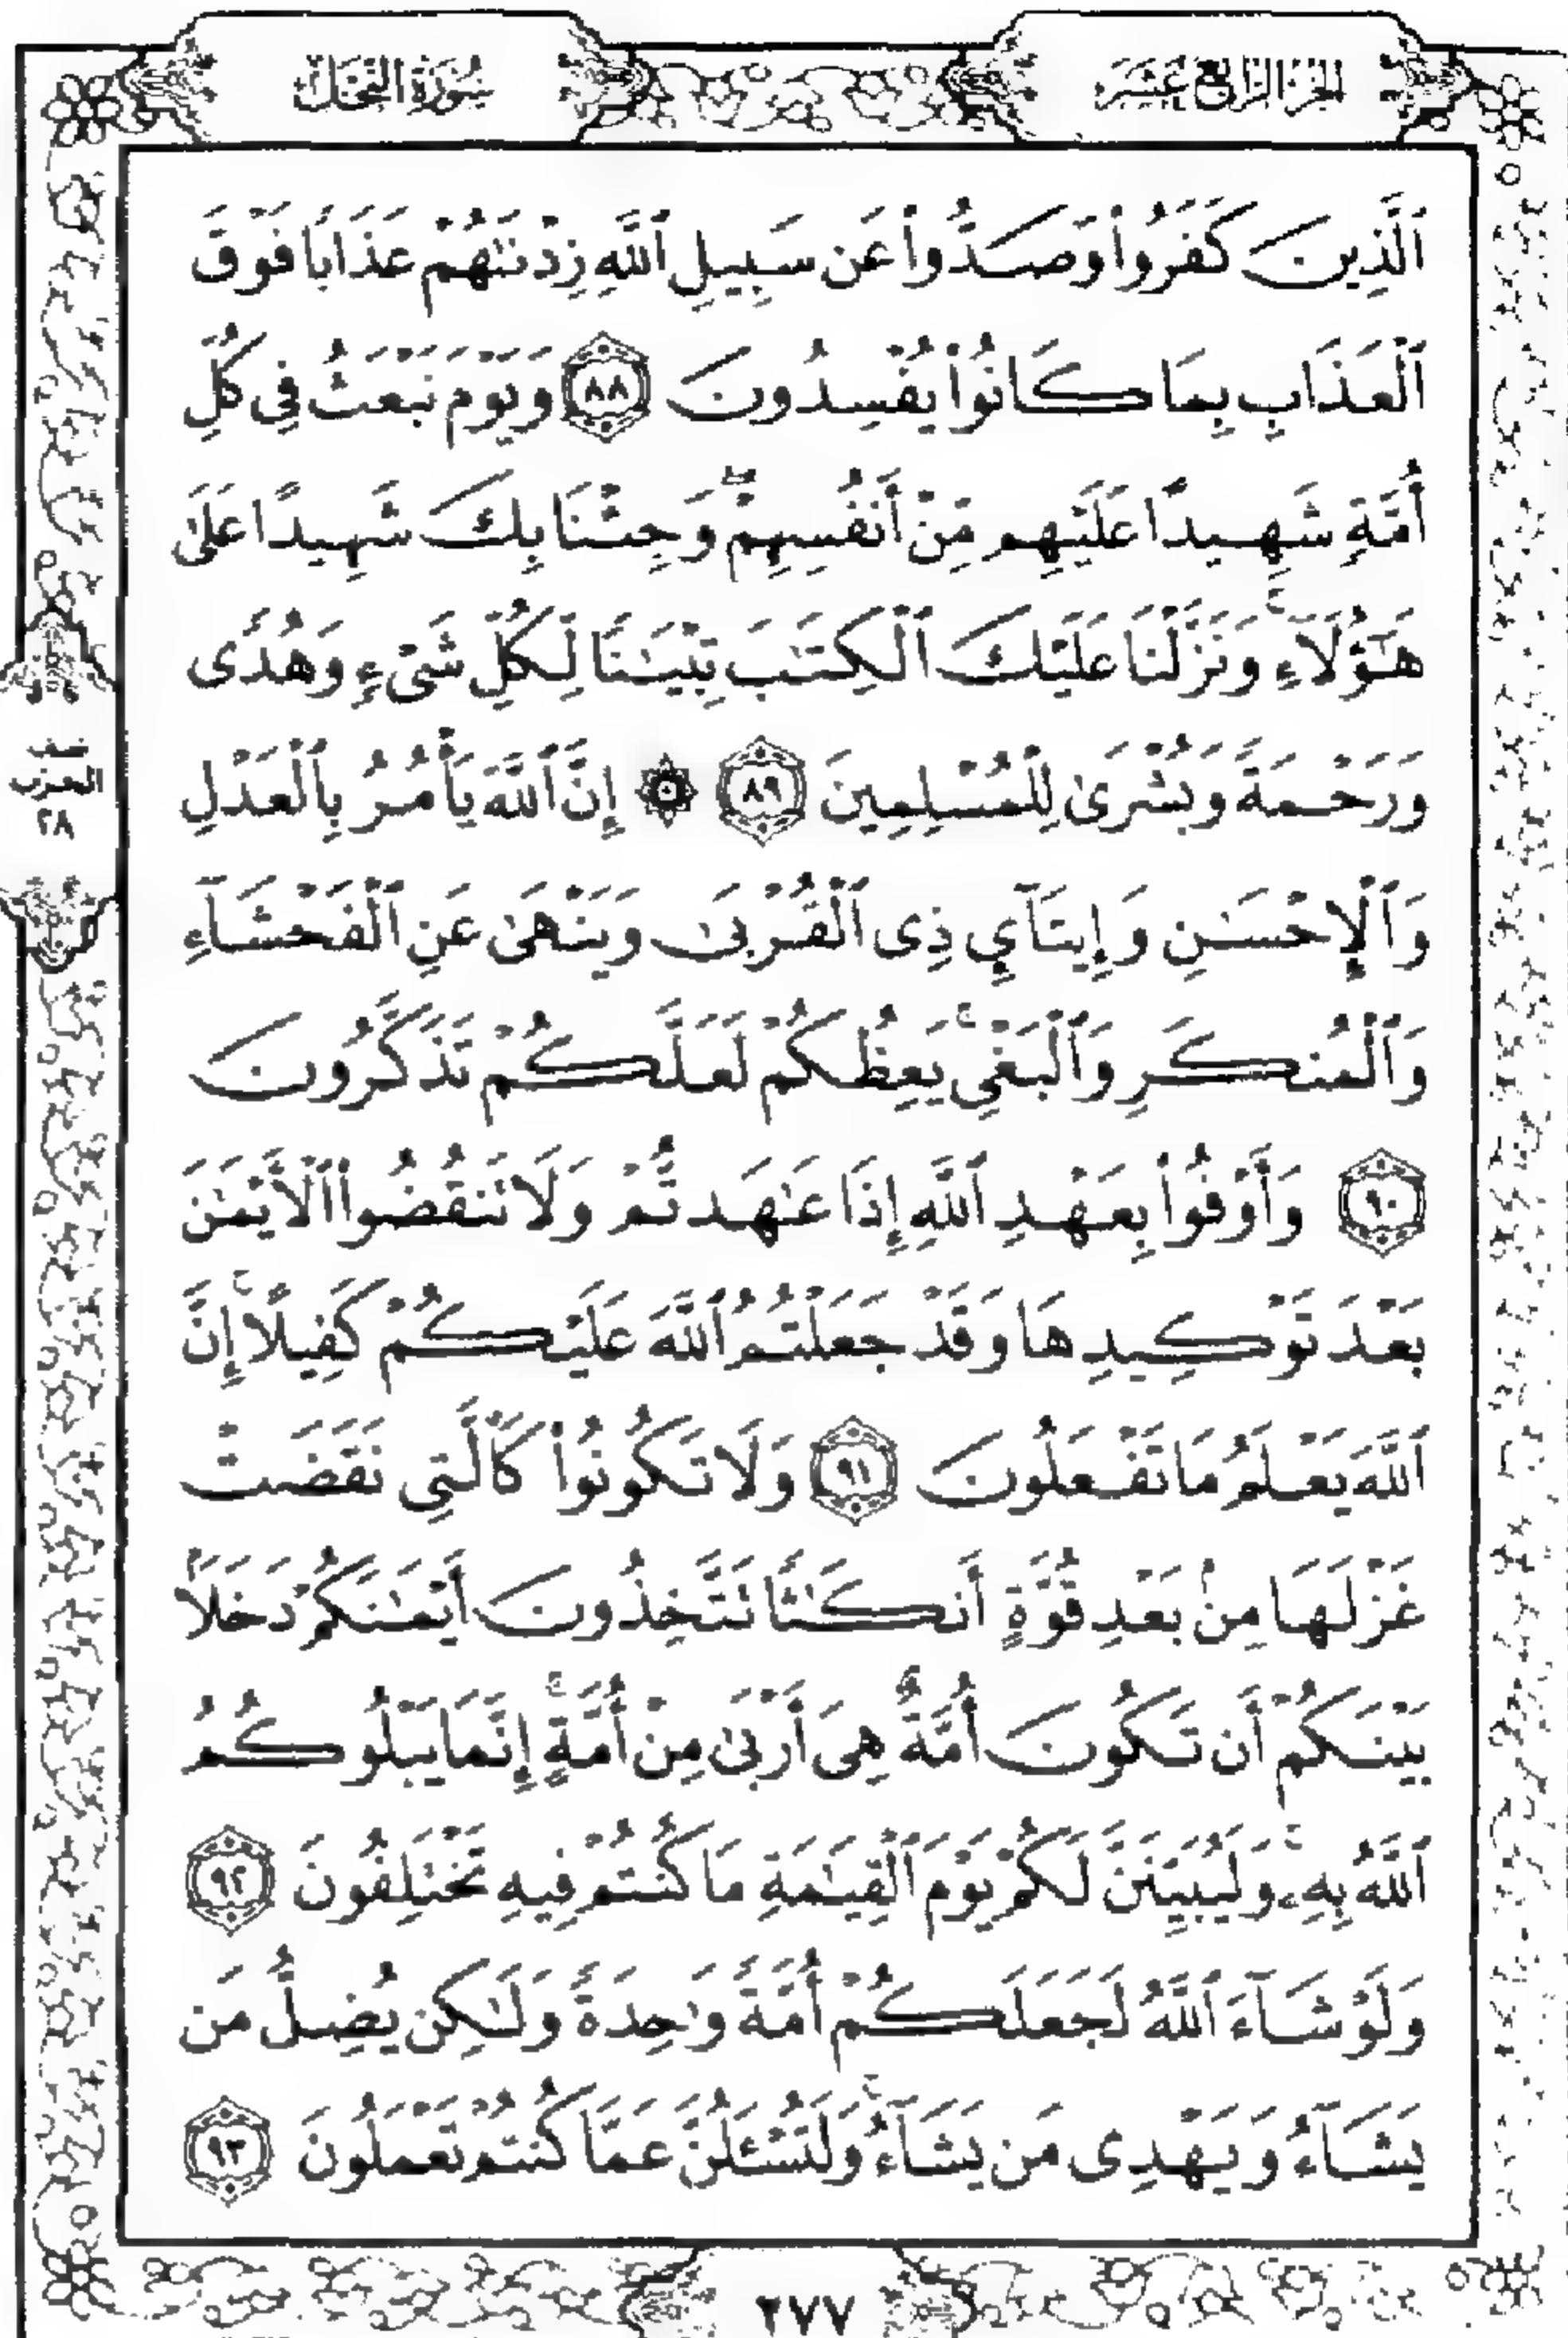 الجزء الرابع عشر
سورة النحل
ٱلَّذِينَ كَفَرُوا۟ وَصَدُّوا۟ عَن سَبِيلِ ٱللَّهِ زِدْنَـٰهُمْ عَذَابًا فَوْقَ
ٱلْعَذَابِ بِمَا كَانُوا۟ يُفْسِدُونَ ٨٨ وَيَوْمَ نَبْعَثُ فِى كُلِّ
أُمَّةٍ شَهِيدًا عَلَيْهِم مِّنْ أَنفُسِهِمْ ۖ وَجِئْنَا بِكَ شَهِيدًا عَلَىٰ
هَـٰٓؤُلَآءِ ۚ وَنَزَّلْنَا عَلَيْكَ ٱلْكِتَـٰبَ تِبْيَـٰنًا لِّكُلِّ شَىْءٍ وَهُدًى
وَرَحْمَةً وَبُشْرَىٰ لِلْمُسْلِمِينَ ٨٩ ۞ إِنَّ ٱللَّهَ يَأْمُرُ بِٱلْعَدْلِ
وَٱلْإِحْسَـٰنِ وَإِيتَآئِ ذِى ٱلْقُرْبَىٰ وَيَنْهَىٰ عَنِ ٱلْفَحْشَآءِ
وَٱلْمُنكَرِ وَٱلْبَغْىِ ۚ يَعِظُكُمْ لَعَلَّكُمْ تَذَكَّرُونَ
٩٠ وَأَوْفُوا۟ بِعَهْدِ ٱللَّهِ إِذَا عَـٰهَدتُّمْ وَلَا تَنقُضُوا۟ ٱلْأَيْمَـٰنَ
بَعْدَ تَوْكِيدِهَا وَقَدْ جَعَلْتُمُ ٱللَّهَ عَلَيْكُمْ كَفِيلًا ۚ إِنَّ
ٱللَّهَ يَعْلَمُ مَا تَفْعَلُونَ ٩١ وَلَا تَكُونُوا۟ كَٱلَّتِى نَقَضَتْ
غَزْلَهَا مِنۢ بَعْدِ قُوَّةٍ أَنكَـٰثًا تَتَّخِذُونَ أَيْمَـٰنَكُمْ دَخَلًۢا
بَيْنَكُمْ أَن تَكُونَ أُمَّةٌ هِىَ أَرْبَىٰ مِنْ أُمَّةٍ ۚ إِنَّمَا يَبْلُوكُمُ
ٱللَّهُ بِهِۦ ۚ وَلَيُبَيِّنَنَّ لَكُمْ يَوْمَ ٱلْقِيَـٰمَةِ مَا كُنتُمْ فِيهِ تَخْتَلِفُونَ ٩٢
وَلَوْ شَآءَ ٱللَّهُ لَجَعَلَكُمْ أُمَّةً وَٰحِدَةً وَلَـٰكِن يُضِلُّ مَن
يَشَآءُ وَيَهْدِى مَن يَشَآءُ ۚ وَلَتُسْـَٔلُنَّ عَمَّا كُنتُمْ تَعْمَلُونَ ٩٣
نصف
الحزب
٢٨
٢٧٧